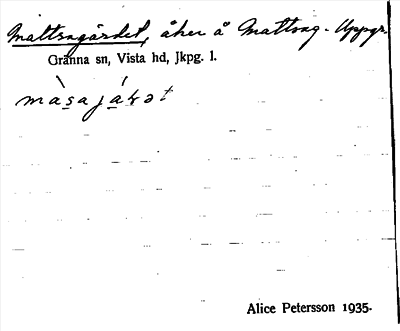 Mattsagärdet, åker å Mattsag. - Uppgr.
Gränna sn, Vista hd, Jkpg. l.
Alice Petersson 1935.